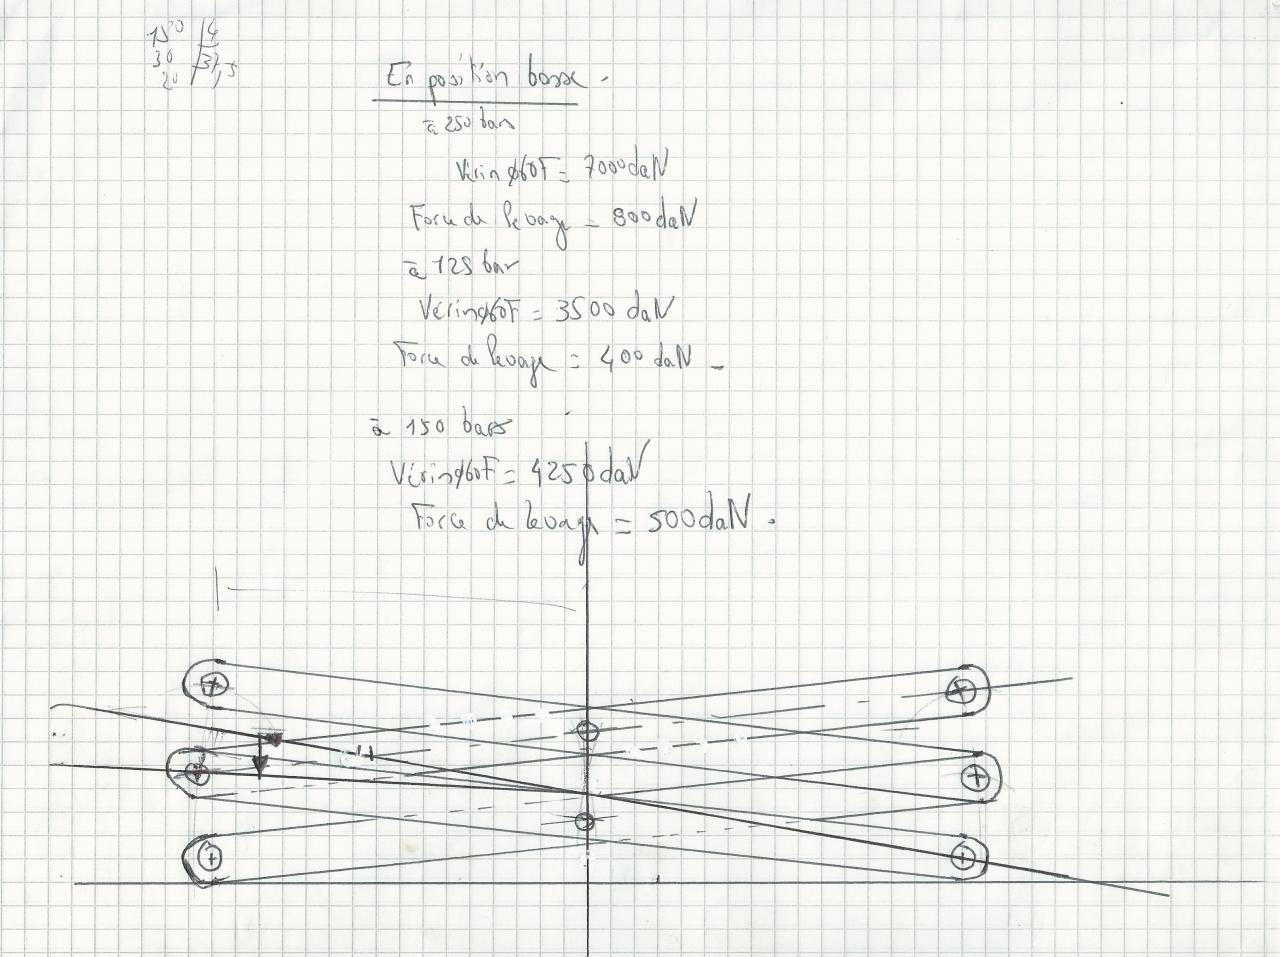 150 4
30 37,5
20
En position basse.
à 250 bar
Vérin ø60 F = 7000 daN
Force de levage = 800 daN
à 125 bar
Vérin ø60 F = 3500 daN
Force de levage = 400 daN
à 150 bars
Vérin ø60 F = 4250 daN
Force de levage = 500 daN.